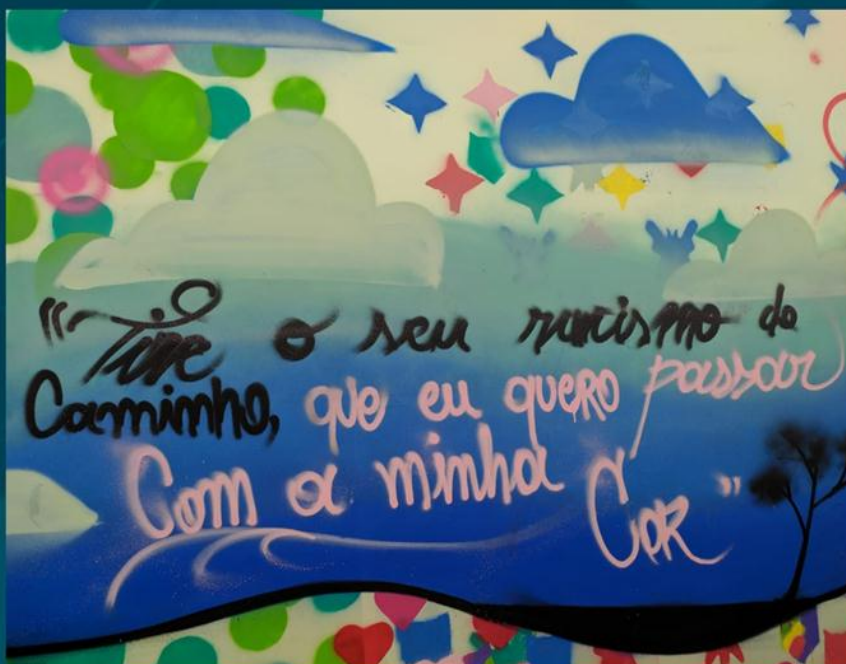 "Tire o seu racismo do
Caminho, que eu quero passar
Com a minha Cor"